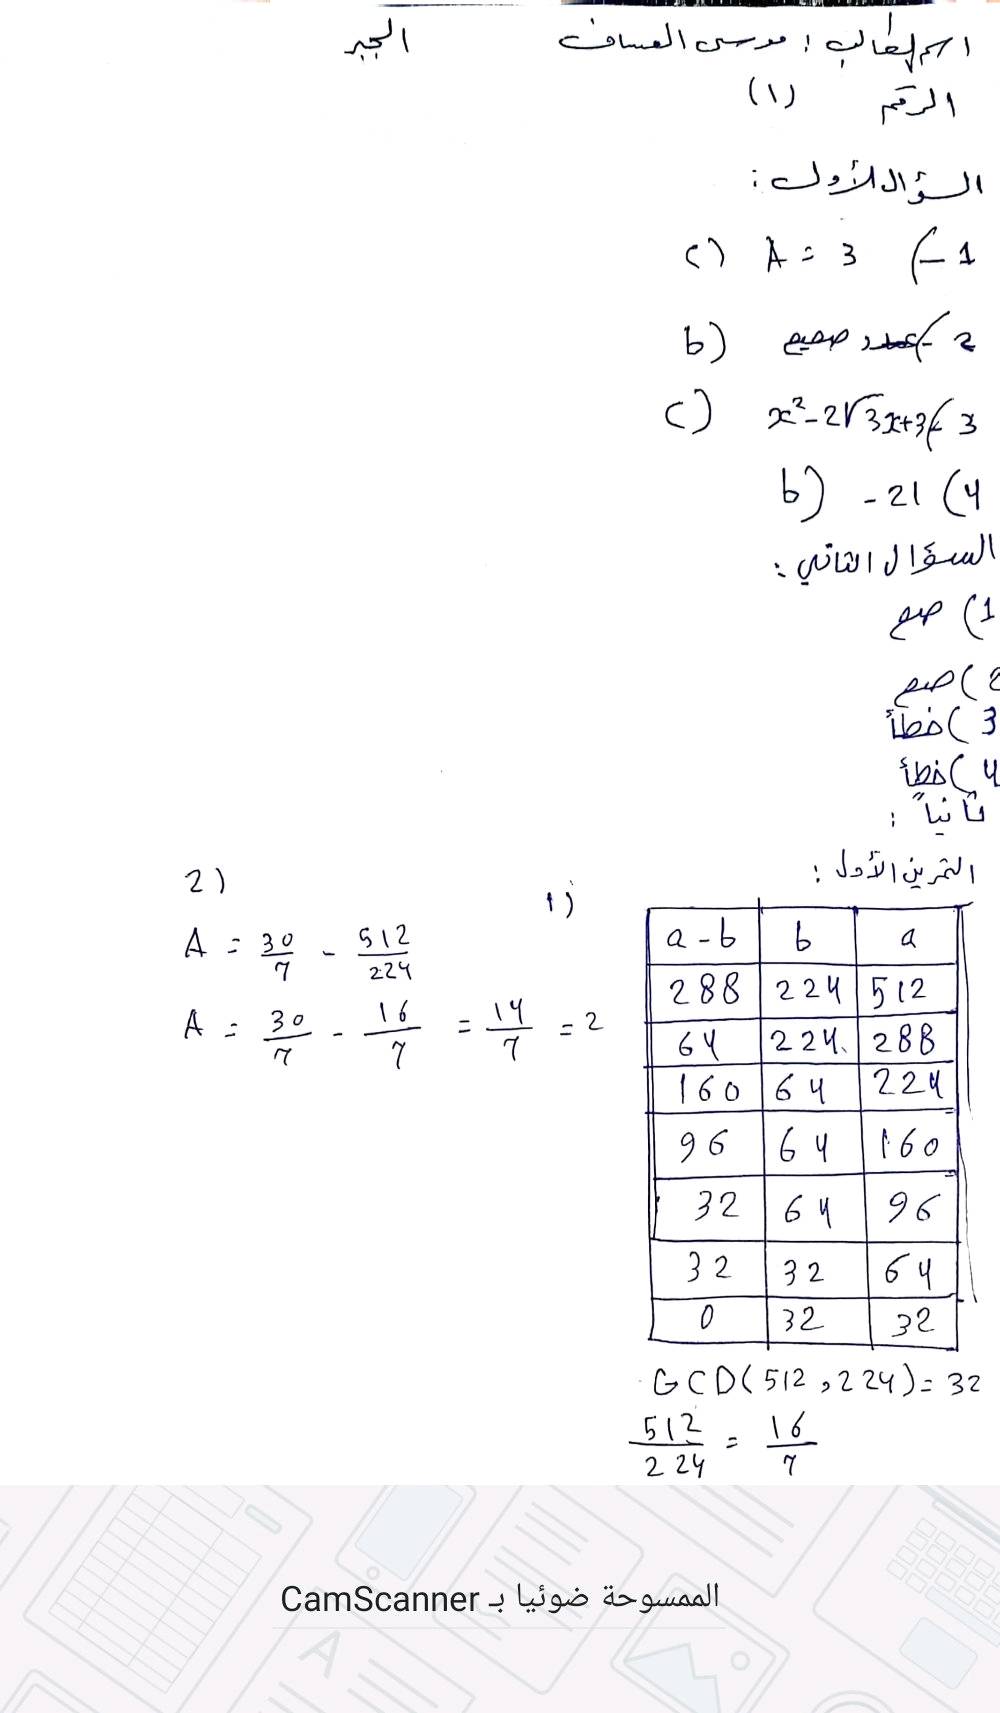 اسم الطالب : موسى العساف الجبر
الرقم (1)
السؤال الأول :
1 -) A = 3 (c
2 -) عدد صحيح (b
3 -) x² - 2√3x + 3 (c
4) -21 (b
السؤال الثاني :
1) صح
2) صح
3) خطأ
4) خطأ
ثانياً :
التمرين الأول :
1)
a b a - b
512 224 288
288 224 64
224 64 160
160 64 96
96 64 32
64 32 32
32 32 0
GCD(512 , 224) = 32
512/224 = 16/7
2)
A = 30/7 - 512/224
A = 30/7 - 16/7 = 14/7 = 2
الممسوحة ضوئيا بـ CamScanner